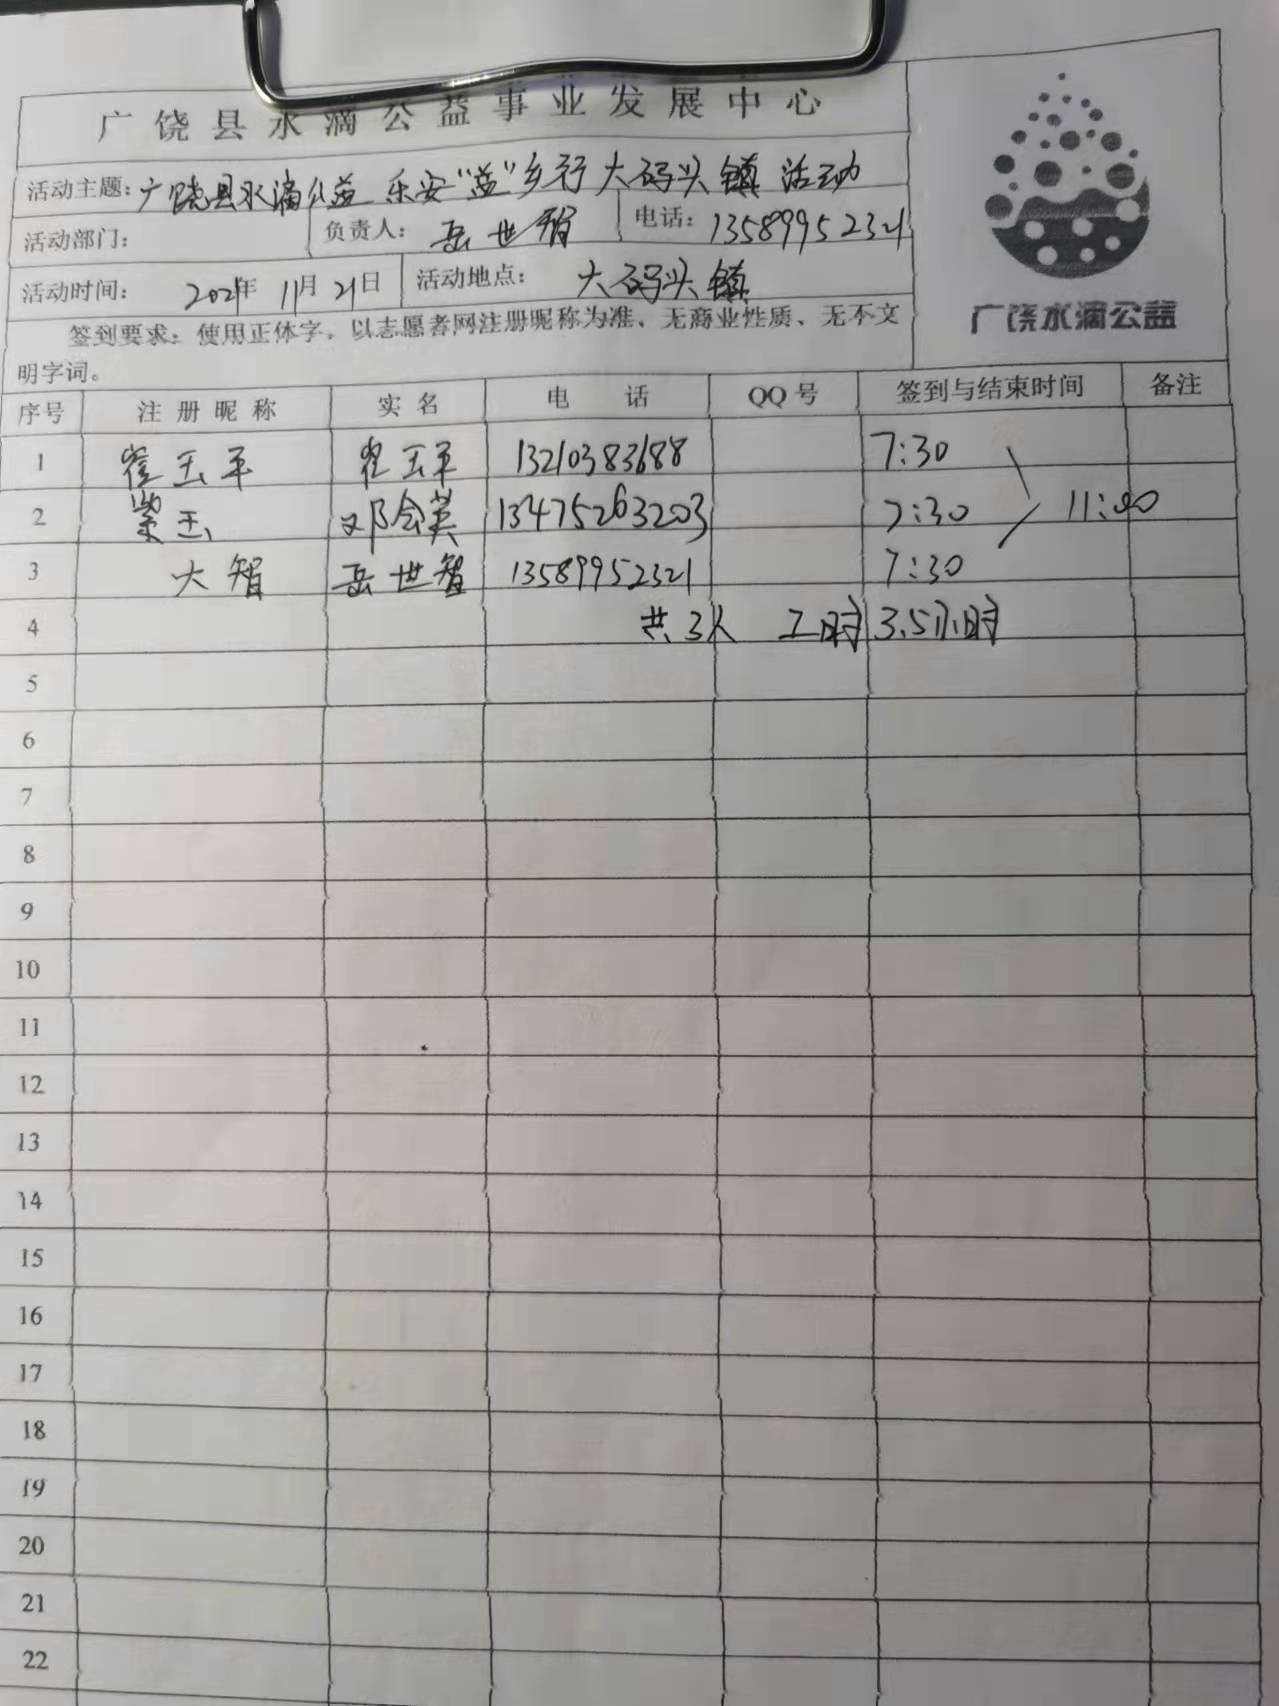 广饶县水滴公益事业发展中心
活动主题：广饶县水滴公益 乐安“益”乡行 大码头镇 活动
活动部门： 负责人：岳世智 电话：13589952321
活动时间： 2021年 11月 21日 活动地点： 大码头镇
广饶水滴公益
签到要求：使用正体字，以志愿者网注册昵称为准，无商业性质、无不文
明字词。
序号 注册昵称 实名 电话 QQ号 签到与结束时间 备注
1 崔玉平 崔玉平 13210383688 7:30
2 紫玉 邓会英 13475263203 7:30 11:00
3 大智 岳世智 13589952321 7:30
4 共3人 工时 3.5小时
5
6
7
8
9
10
11
12
13
14
15
16
17
18
19
20
21
22